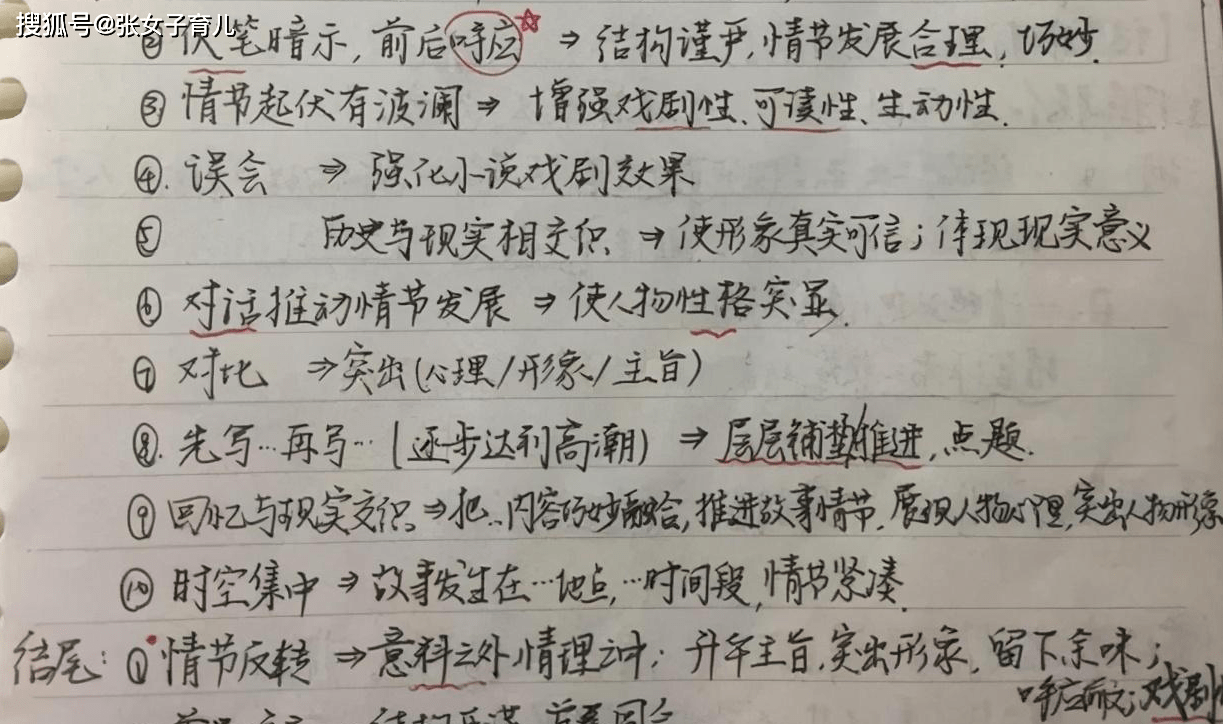 搜狐号@张女子育儿
② 伏笔暗示,前后呼应☆ ⇒ 结构谨严,情节发展合理,巧妙.
③ 情节起伏有波澜 ⇒ 增强戏剧性、可读性、生动性.
④. 误会 ⇒ 强化小说戏剧效果
⑤ 历史与现实相交织 → 使形象真实可信;体现现实意义
⑥ 对话推动情节发展 ⇒ 使人物性格突显.
⑦ 对比 ⇒ 突出(心理/形象/主旨)
⑧. 先写…再写…(逐步达到高潮) ⇒ 层层铺垫推进,点题.
⑨ 回忆与现实交织 → 把…内容巧妙融合,推进故事情节,展现人物心理,突出人物形象
⑩ 时空集中 ⇒ 故事发生在…地点,…时间段,情节紧凑.
结尾:① 情节反转 ⇒ 意料之外,情理之中;升华主旨,突出形象,留下余味;
呼应前文;戏剧